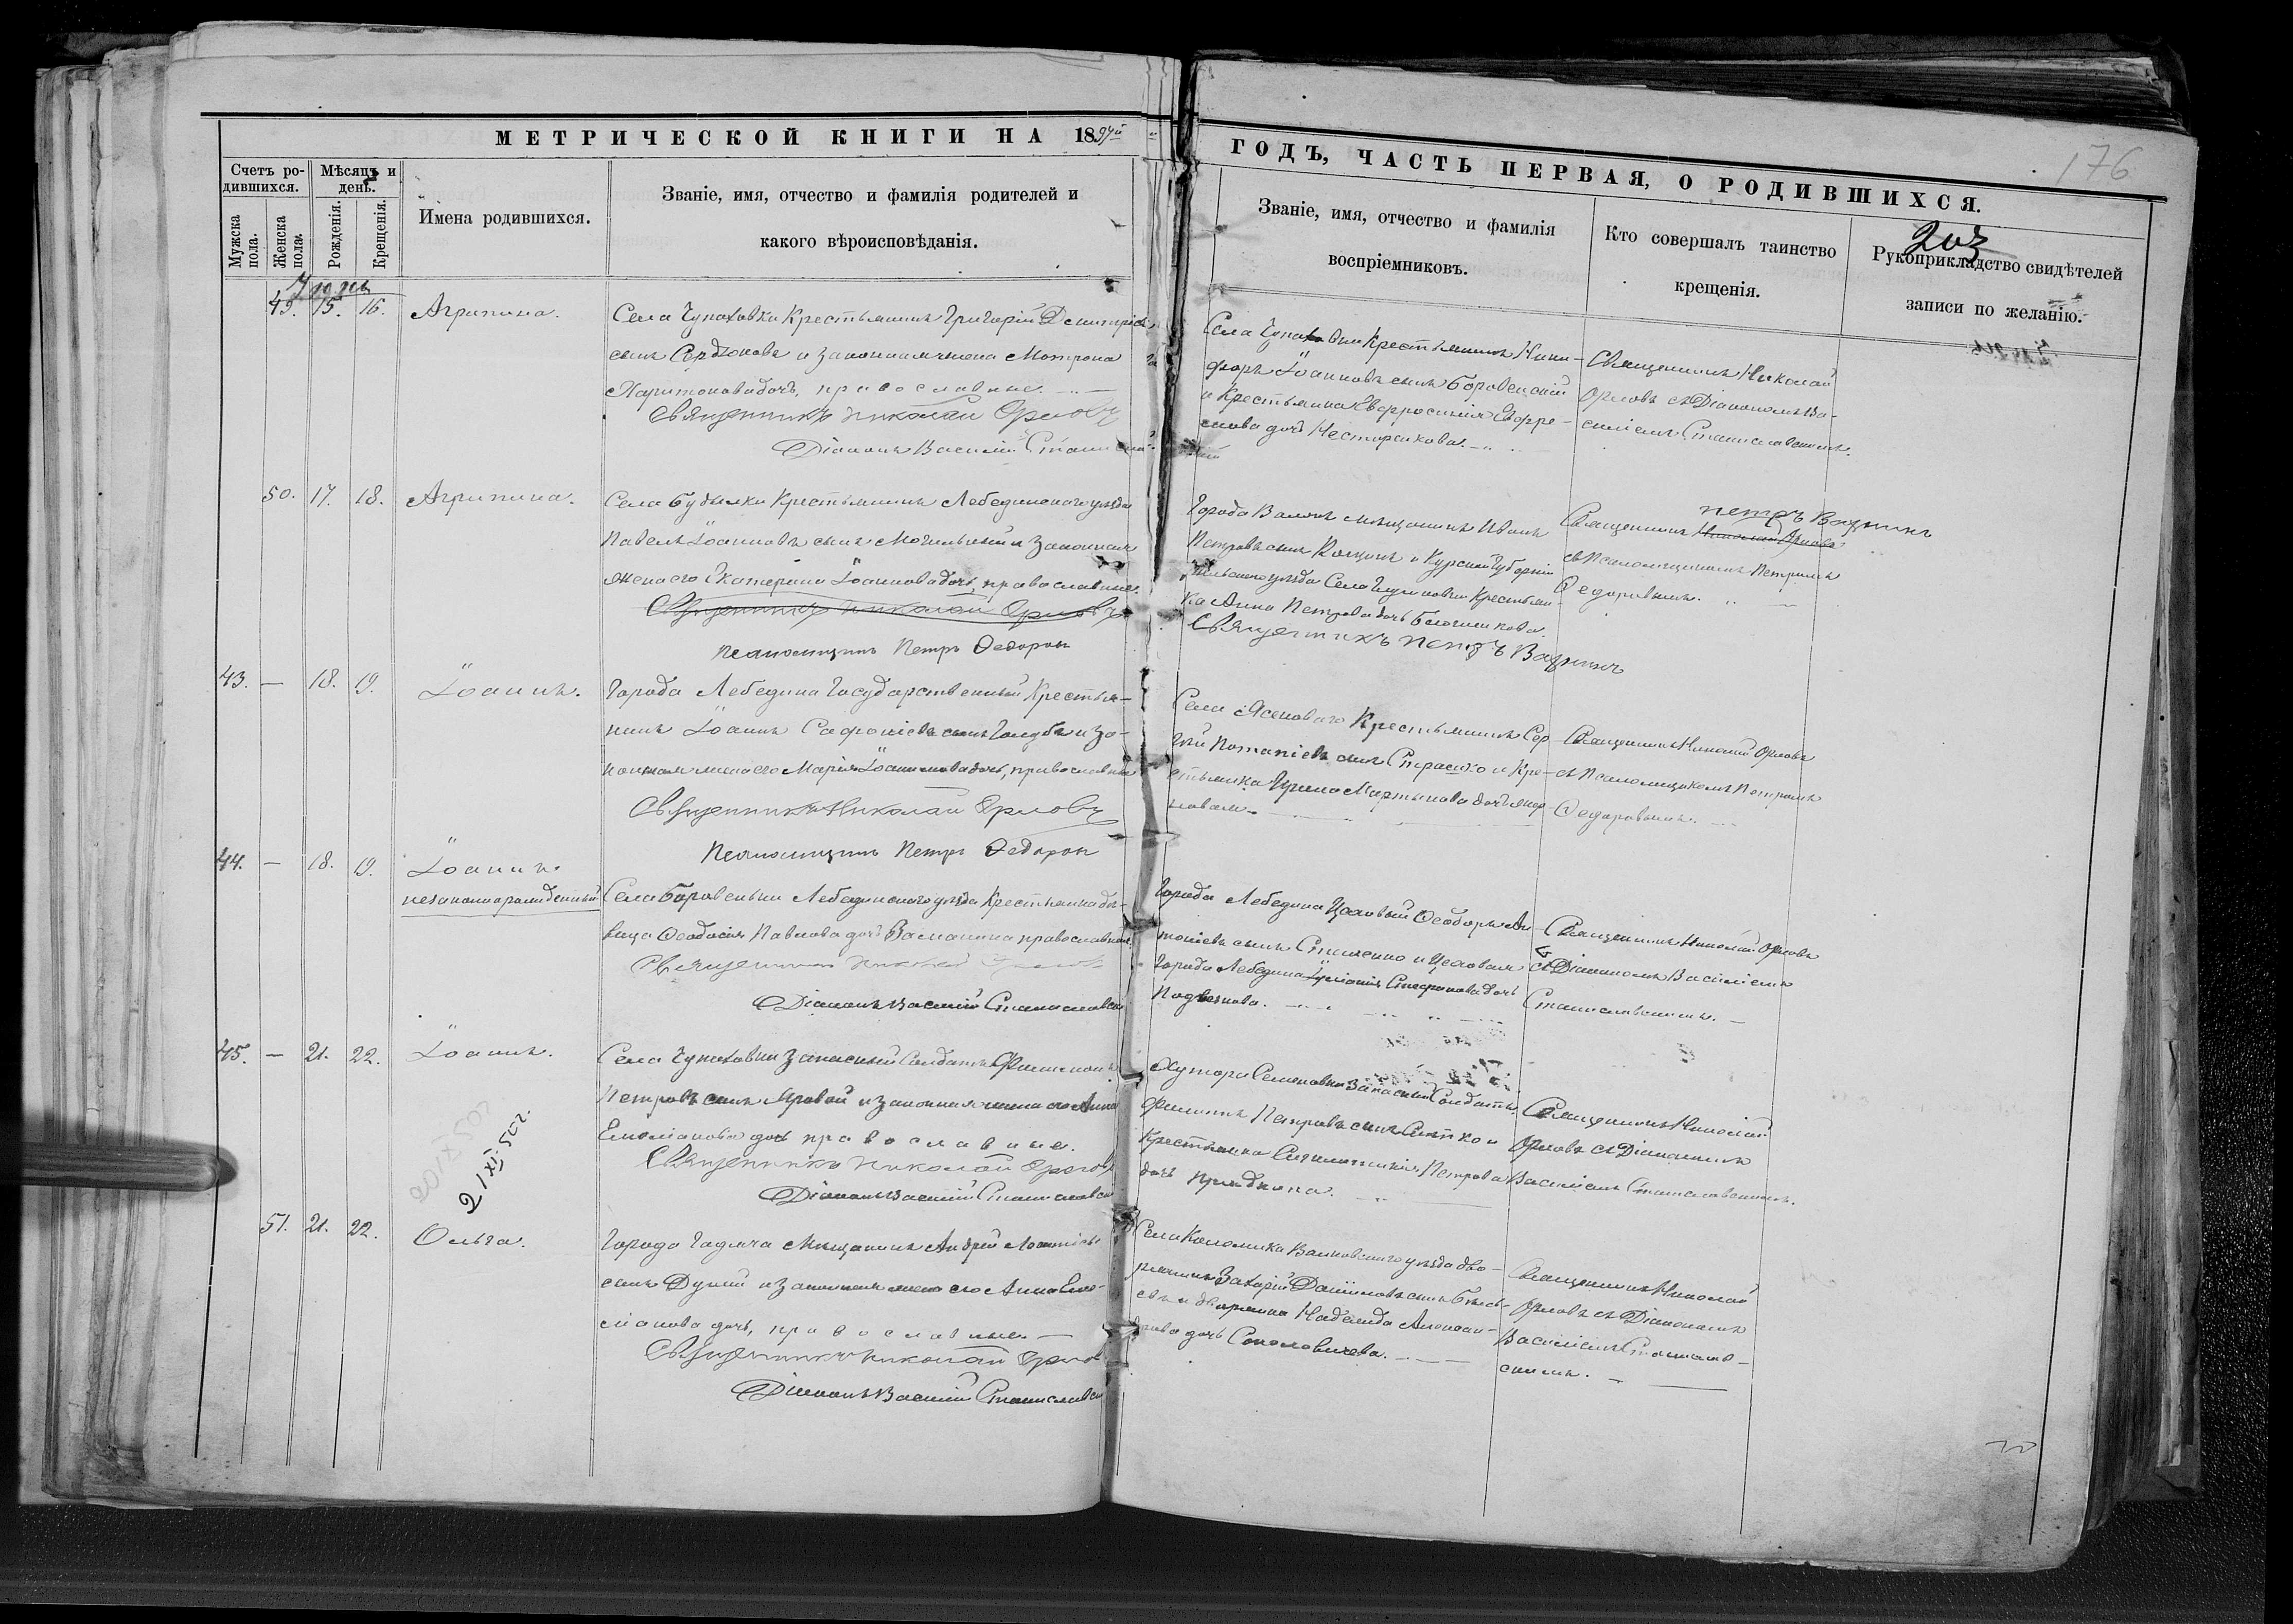 МЕТРИЧЕСКОЙ КНИГИ НА 1894й
Счетъ ро-
дившихся.
Мѣсяцъ и
день.
Мужска
пола.
Женска
пола.
Рожденія.
Крещенія.
Имена родившихся.
Званіе, имя, отчество и фамилія родителей и
какого вѣроисповѣданія.
49. 15. 16. Агрипина.
Села Чупаховки Крестьянинъ Григорій Димитріевъ
сынъ Сердюковъ и законная жена Мотрона
Харитонова дочь, православные.
Священникъ Николай Орловъ
Діаконъ Василій
50. 17. 18. Агрипина.
Села Будылки Крестьянинъ Лебединскаго уѣзда
Павелъ Іоанновъ сынъ Могильный и законная
жена его Екатерина Іоаннова дочь, православные.
Священникъ Николай Орловъ
Псаломщикъ Петръ Ѳедоров
43. — 18. 19. Іоаннъ.
Города Лебедина Государственный Крестья-
нинъ Іоаннъ Софроніевъ сынъ Голубъ и за-
конная жена его Марія Іоаннова дочь, православные
Священникъ Николай Орловъ
Псаломщикъ Петръ Ѳедоров
44. — 18. 19. Іоаннъ.
незаконнорожденный
Села Боровеньки Лебединскаго уѣзда Крестьянка дѣ-
вица Ѳеодосія Павлова дочь православная.
Священникъ Николай Орловъ
Діаконъ Василій Станиславск
45. — 21. 22. Іоаннъ.
Села Чупаховки запасный Солдатъ Филимонъ
Петровъ сынъ Яровой и законная жена его Анна
Емеліанова дочь православные.
Священникъ Николай Орловъ
Діаконъ Василій Станиславск
21 XI 522.
51. 21. 22. Ольга.
Города Гадяча Мѣщанинъ Андрей
сынъ и законная жена его Анна Еме-
ліанова дочь, православные. —
Священникъ Николай Орлов
Діаконъ Василій Станиславск
ГОДЪ, ЧАСТЬ ПЕРВАЯ, О РОДИВШИХСЯ.
176
203
Званіе, имя, отчество и фамилія
воспріемниковъ.
Кто совершалъ таинство
крещенія.
Рукоприкладство свидѣтелей
записи по желанію.
Села Чупаховки Крестьянинъ Ники-
форъ Іоанновъ сынъ Боровенскій
и Крестьянка Евфросинія Ефре-
мова дочь Нестеренкова.
Священникъ Николай
Орловъ съ Діакономъ Ва-
силіемъ Станиславскимъ.
Города Валокъ мѣщанинъ Иванъ
Петровъ сынъ и Курской Губерніи
уѣзда Села Крестьян-
ка Анна Петрова дочь
Священникъ Петръ
Петръ
Священникъ Николай Орловъ
съ Псаломщикомъ Петромъ
Ѳедоровымъ.
Села Ясенового Крестьянинъ Сер-
гѣй Потапіевъ сынъ Страшко и Кре-
стьянка Ирина Мартынова дочь
Священникъ Николай Орловъ
съ Псаломщикомъ Петромъ
Ѳедоровымъ.
Города Лебедина Цеховый Ѳеодоръ Ан-
тоніевъ сынъ и Цеховая
Города Лебедина Стефанова дочь
Священникъ Николай Орловъ
съ Діакономъ Василіемъ
Станиславскимъ. —
Хутора Семеновки запасный Солдатъ
Филиппъ Петровъ сынъ и
Крестьянка Петрова
дочь
Священникъ Николай
Орловъ съ Діакономъ
Василіемъ Станиславскимъ.
Села Коломака Валковскаго уѣзда дво-
рянинъ Захарій Даніиловъ сынъ
и дворянка Надежда Алексан-
дрова дочь
Священникъ Николай
Орловъ съ Діакономъ
Василіемъ Станислав-
скимъ.